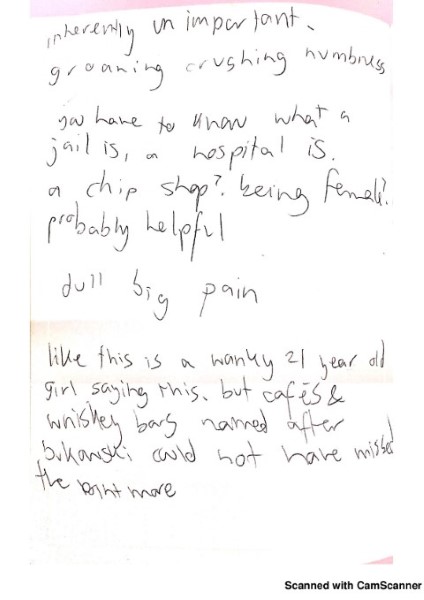 inherently un important.
groaning crushing numbness
you have to know what a
jail is, a hospital is.
a chip shop?. being female?.
probably helpful
dull big pain
like this is a wanky 21 year old
girl saying this. but cafés &
whiskey bars named after
bukowski could not have missed
the point more
Scanned with CamScanner